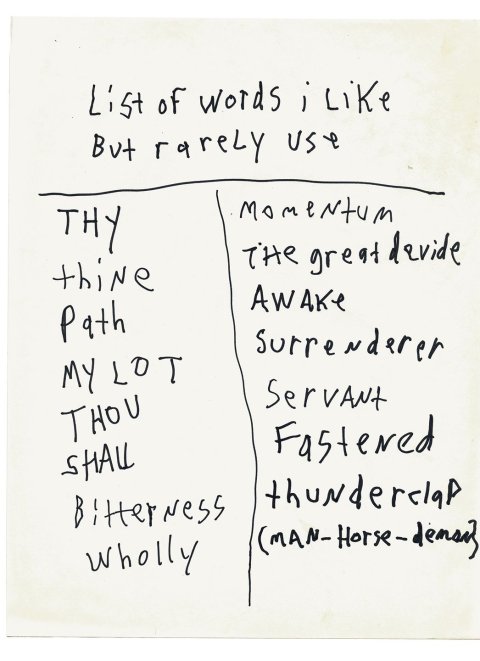 List of words i Like
But rareLy use
THY
thiNe
Path
MY LOT
THOU
SHALL
BitterNess
Wholly
MomeNtum
THe great devide
AWAKe
Surrenderer
ServANt
Fastened
thunderclaP
(MAN-Horse-demon)